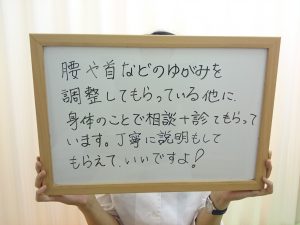 腰や首などのゆがみを
調整してもらっている他に、
身体のことで相談+診てもらって
います。丁寧に説明もして
もらえて、いいですよ!